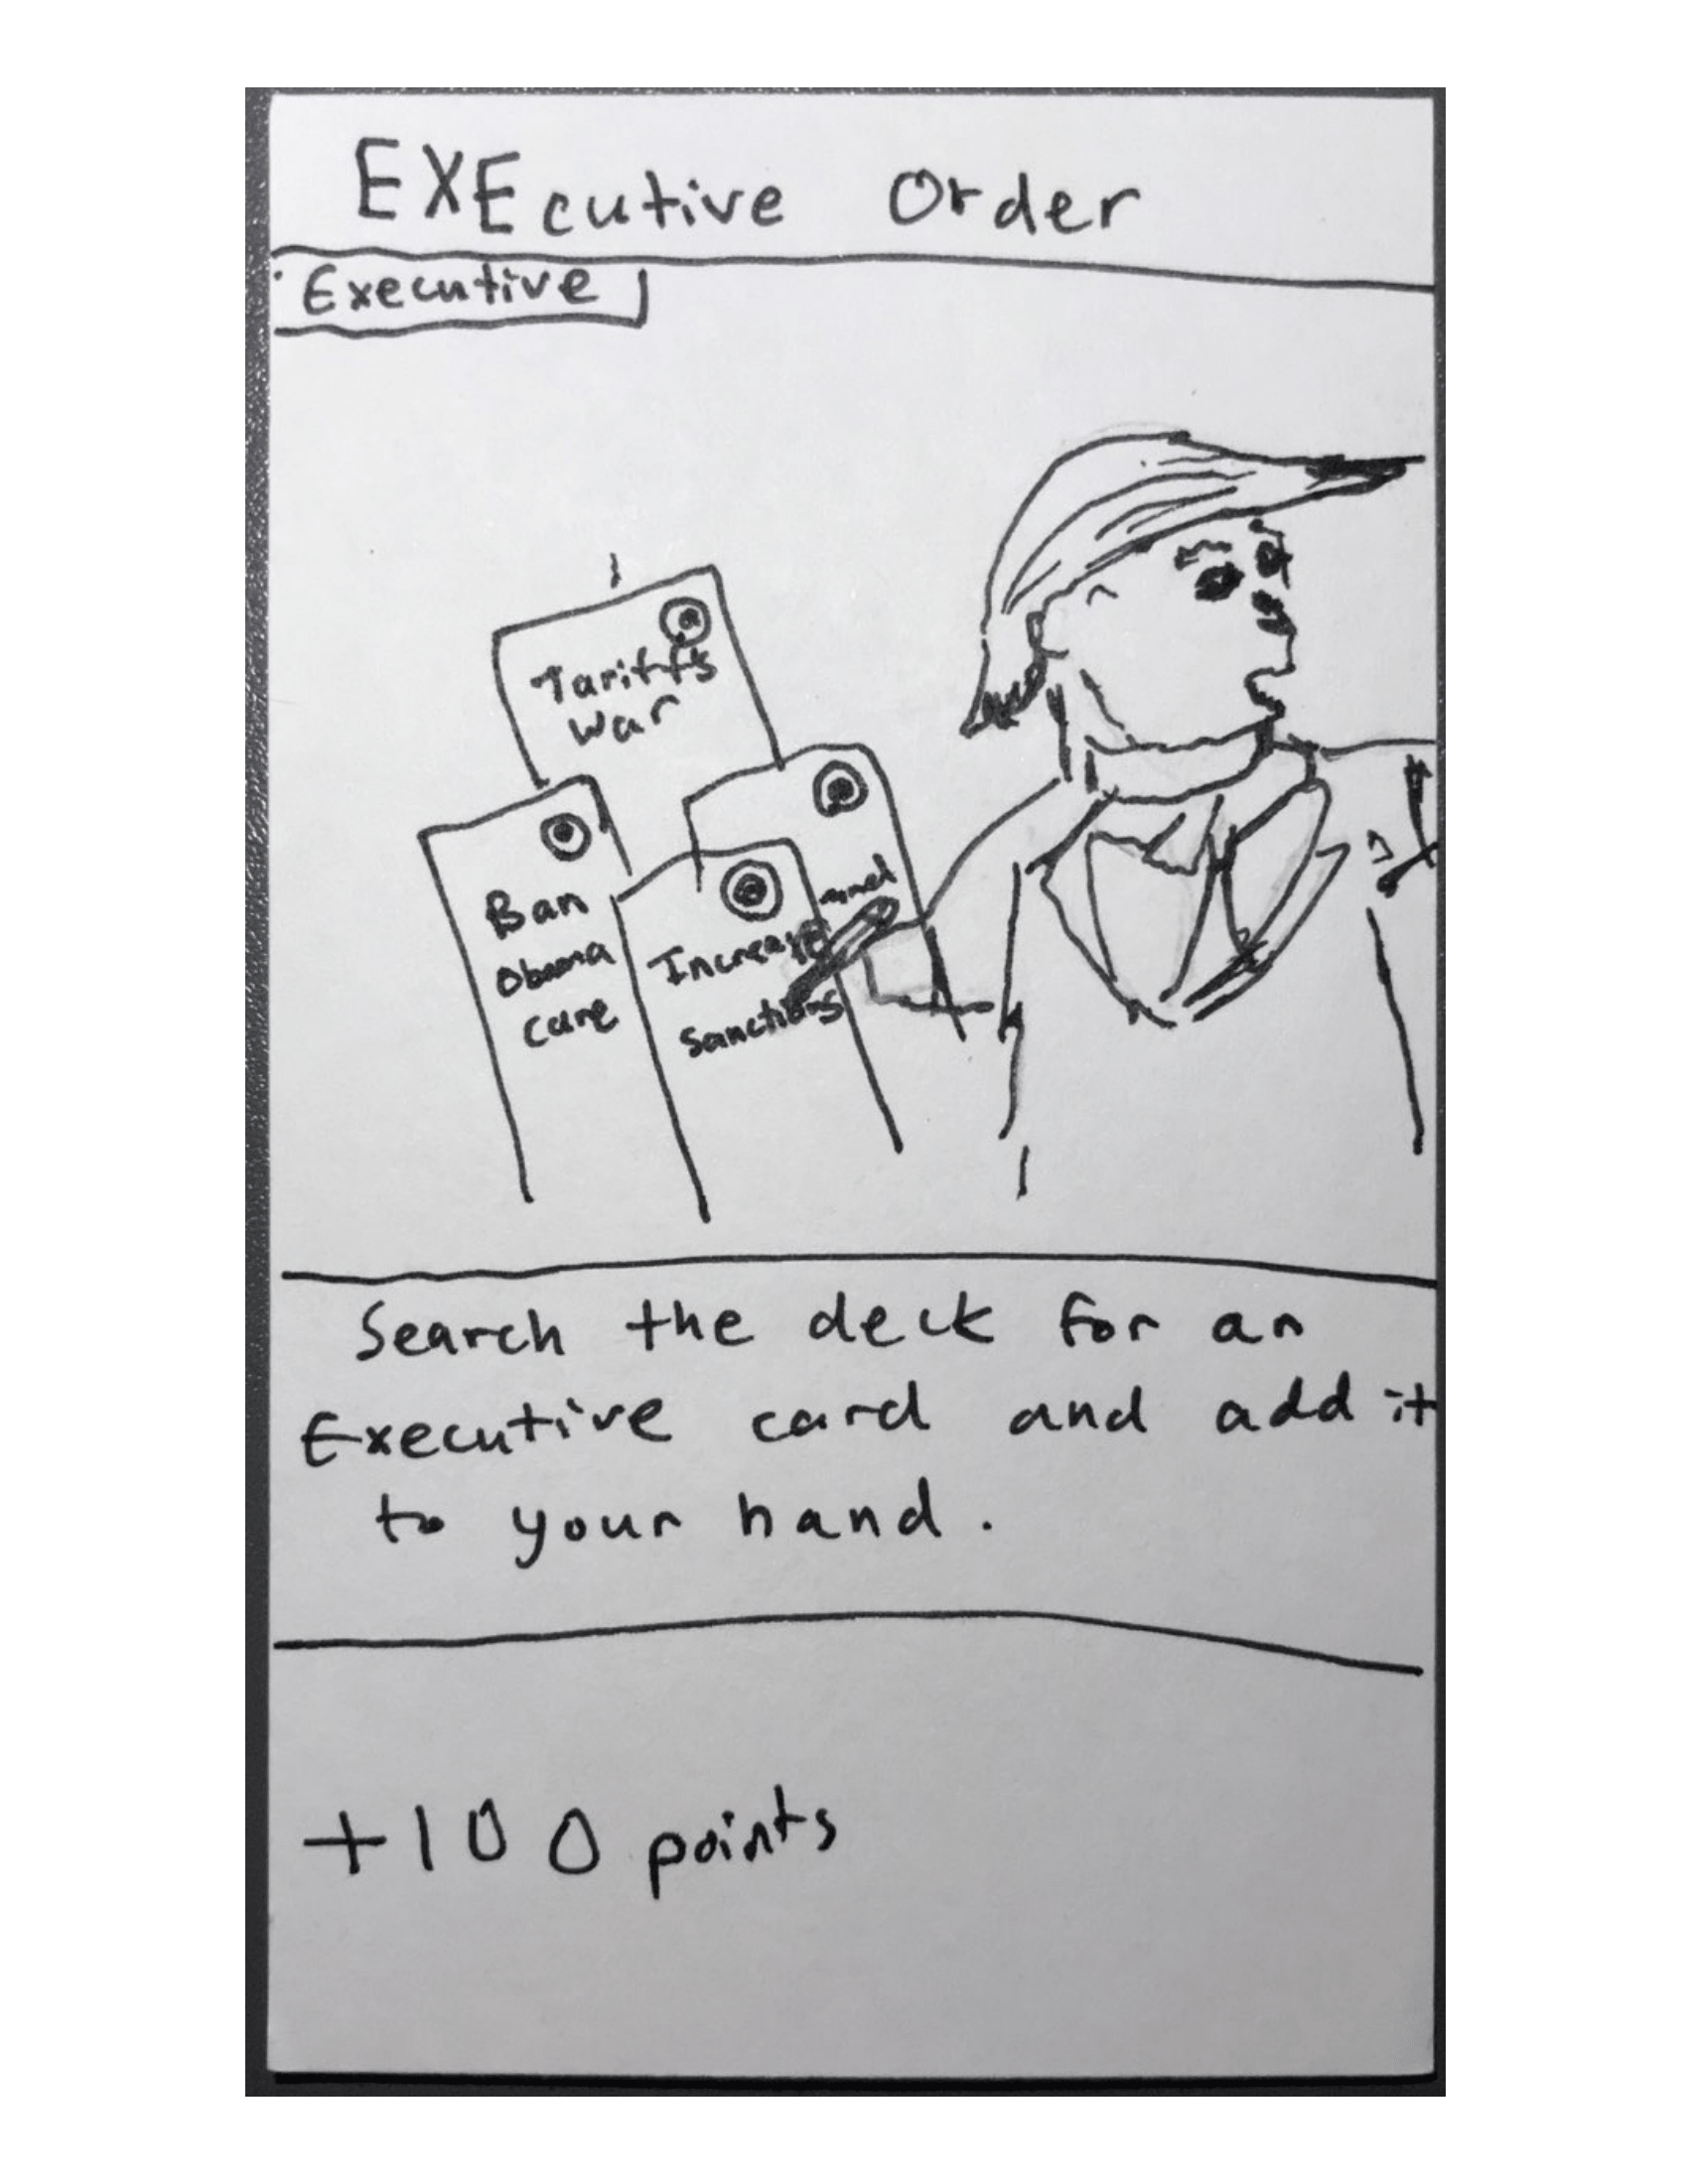 EXEcutive Order
Executive
Tariffs
war
Ban
Obama
care
Increase
Sanctions
Search the deck for an
Executive card and add it
to your hand.
+100 points